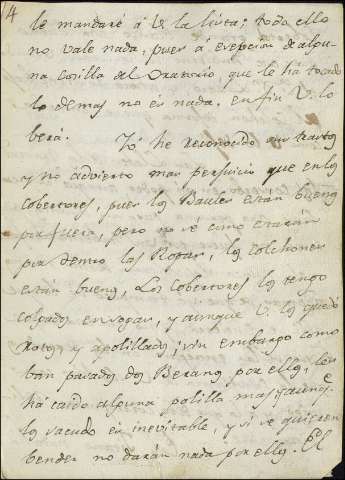 14
le mandaré á V. la lista; todo ello
no vale nada, pues á exepcion de algu-
na cosilla del Oratorio, que le há tocado
lo demas no és nada. en fin V. lo
berá. Yó he reconocido sus trastos
y no advierto mas perjuicio que en los
Cobertores, pues los Baules están buenos
por fuera, pero no sé como estarán
por dentro las Ropas, los Colchones
están buenos, Los Cobertores los tengo
colgados en sogas, y aunque V. los quedó
Rotos, y apolillados; sin embargo como
han pasado dos Beranos por ellos, les
há caido alguna polilla mas, y aunqe.
los sacudo és inevitable, y si se quieren
bender no darán nada por ellos. El